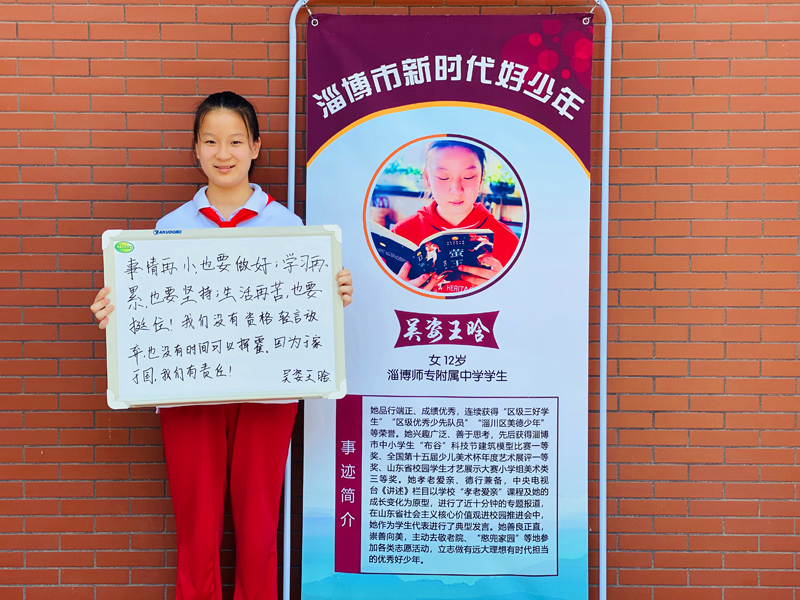 淄博市新时代好少年
萤王
HERITA
吴姿王晗
女 12岁
淄博师专附属中学学生
事迹简介
她品行端正、成绩优秀,连续获得“区级三好学
生”“区级优秀少先队员”“淄川区美德少年”
等荣誉。她兴趣广泛、善于思考,先后获得淄博
市中小学生“布谷”科技节建筑模型比赛一等
奖、全国第十五届少儿美术杯年度艺术展评一等
奖、山东省校园学生才艺展示大赛小学组美术类
三等奖。她孝老爱亲、德行兼备,中央电视
台《讲述》栏目以学校“孝老爱亲”课程及她的
成长变化为原型,进行了近十分钟的专题报道,
在山东省社会主义核心价值观进校园推进会中,
她作为学生代表进行了典型发言。她善良正直,
崇善向美,主动去敬老院、“憨兜家园”等地参
加各类志愿活动,立志做有远大理想有时代担当
的优秀好少年。
事情再小,也要做好;学习再
累,也要坚持;生活再苦,也要
挺住!我们没有资格轻言放
弃,也没有时间可以挥霍。因为于家
于国,我们有责任!
吴姿王晗